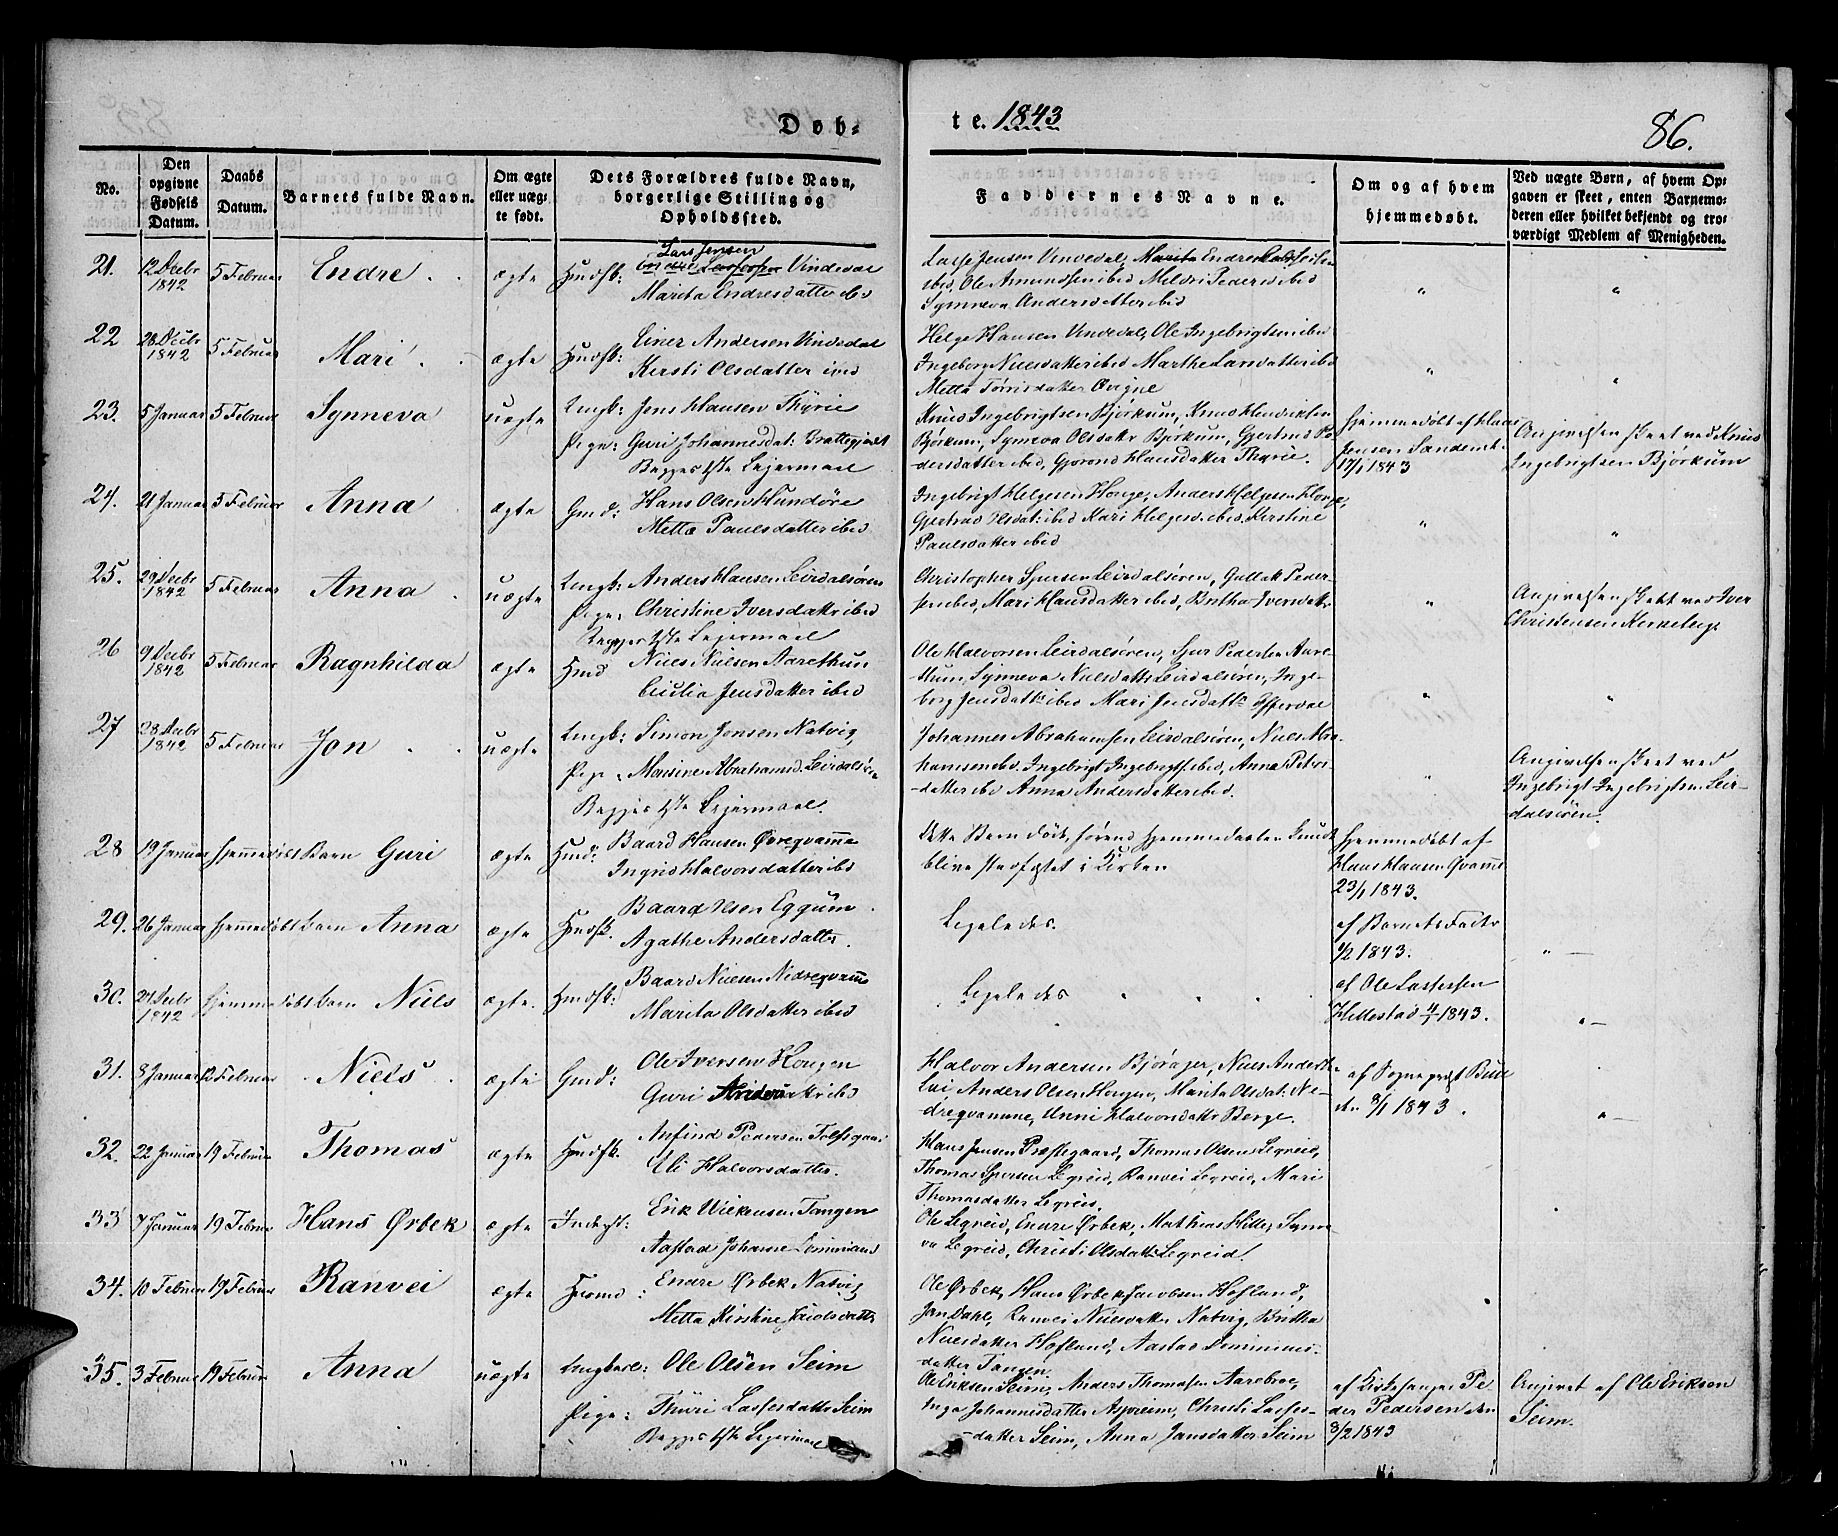 Døb-
te. 1843
86.
No.
Den opgivne Fødsels Datum.
Daabs Datum.
Barnets fulde Navn.
Om ægte eller uægte født.
Dets Forældres fulde Navn, borgerlige Stilling og Opholdssted.
Faddernes Navne.
Om og af hvem hjemmedøbt.
Ved uægte Børn, af hvem Opgaven er skeet, enten Barnemoderen eller hvilket bekjendt og troværdigt Medlem af Menigheden.
21. 12 Decbr 1842 5 Februar Endre ægte Huusf: Lars Jensen Vindedal
Marita Endresdatter ibid
Lasse Jensen Vindedal,
ibid, Ole Amundsen ibid Mildri Pedersd ibid
Synneva Andersdatter ibid
22 28 Decbr 1842 5 Februar Mari ægte Huusf: Einer Andersen Vindedal
Kersti Olsdatter ibid
Helge Hansen Vindedal, Ole Ingebrigtsen ibid
Ingeborg Nielsdatter ibid Marthe Larsdatter ibid
Metta Tørrisdatter Øvigne
23. 5 Januar 5 Februar Synneva uægte Ungk: Jens Hansen Thyrie
Pige: Guri Johannesdat: Brattegjerdt
Begges 1ste Lejermaal
Knud Ingebrigtsen Bjørkum, Knud Henriksen
Bjørkum, Synneva Olsdattr Bjørkum, Gjertrud Pe-
dersdatter ibid, Gjørond Hansdatter Thyrie.
Hjemmedøbt af Hans
Jensen
17/1 1843
Angivelsen skeet ved Knud
Ingebrigtsen Bjørkum
24. 21 Januar 5 Februar Anna ægte Gmd: Hans Olsen Hundøre
Metta Paulsdatter ibid
Ingebrigt Helgesen Houge, Anders Helgesen Houge,
Gjertrud Olsdat: ibid Kari Helgesd. ibid, Kerstine
Paulsdatter ibid
25. 29 Decbr 1842 5 Februar Anna uægte Ungk: Anders Hansen Leirdalsøren
Pige: Christine Iversdattr ibid
Begges 1ste Lejermaal
Christopher Sjursen Leirdalsøren, Gullak Peder-
sen ibid, Mari Hansdatter ibid, Britha Iversdatr
Angivelsen skeet ved Iver
Christensen
26 9 Decbr 1842 5 Februar Ragnhilda ægte Hmd Niels Nielsen Aarethun
Cicilia Jensdatter ibid
Ole Halvorsen Leirdalsøren, Sjur Pedersen Aare-
thun, Synneva Nielsdattr Leirdalsøren, Inge-
borg Jensdattr ibid Mari Jensdattr
27 28 Decbr 1842 5 Februar Jon uægte Ungk: Simon Jonsen Natvig,
Pige: Marsine Abrahamsd. Leirdalsøren
Begges 1ste Lejermaal.
Johannes Abrahamsen Leirdalsøren, Niels Abra-
hamsen ibd. Ingebrigt Ingebrigts. ibid, Anna Peters-
datter ibd Anna Andersdatter ibid.
Angivelsen skeet ved
Ingebrigt Ingebrigtsen Leir-
dalsøren.
28 19 Januar hjemmedøbt Barn Guri ægte Hmd: Baard Hansen Øvregvamme
Ingrid Halvorsdatter ibd
Dette Barn døde, førend Hjemmedaaben kunde
blive stadfæstet i Kirken
Hjemmedøbt af
Hans Hansen Qvamme
23/1 1843.
29. 26 Januar hjemmedøbt Barn Anna ægte Huusf. Baard Olsen Eggum
Agathe Andersdatter.
Ligeledes.
af Barnets Fader
1/2 1843.
30. 27 Decbr 1842 hjemmedøbt barn Niels ægte. Huusf: Baard Nielsen Nidregvamme
Marita Olsdatter ibid
Ligeledes
af Ole Lassesen
Hillestad 4/1 1843.
31. 8 Januar 12 Februar Niels ægte Gmd: Ole Iversen Hougen
Guri ibid
Halvor Andersen Bjørager, Niels Anders
Anders Olsen Hougen, Marita Olsdat: Ne-
dregvamme, Unni Halvorsdattr Berge.
af Sognepræst
den 8/1 1843.
32. 22 Januar 19 Februar Thomas ægte Huusf. Anfind Pedersen
Eli Halvorsdatter.
Hans Jensen Præstegaard, Thomas Olsen Legreid,
Thomas Sjursen Legreid, Ranvei Legreid, Mari
Thomasdatter Legreid.
33 7 Januar 19 Februar Hans Ørbek ægte Inderst: Erik Tangen
Aastad Johanne
Ole Legreid, Endre Ørbek, Mathias Hille, Synne-
va Legreid, Christi Olsdattr Legreid.
34. 10 Februar 19 Februar Ranvei ægte Endre Ørbek Natvig
Metta Kirstine
Ole Ørbek, Hans Ørbek, Jacobsen Hofland,
Jon Dahl, Ranvei Nielsdatter Natvig, Britha
Nielsdatter Hofland, Aastad
datter Tangen
35. 3 Februar 19 Februar Anna uægte Ungkarl: Ole Olsen Seim
Pige: Thuri Lassesdattr Seim
Begges 1ste Lejermaal
Ole Eriksen Seim, Anders Thomasen Aarebroe,
Inga Johannesdatter Asjoreim, Christi Lasses-
datter Seim, Anna Jansdatter Seim
af Kirkesanger Pe-
der Pedersen den
8/2 1843
Angivet af Ole Eriksen
Seim.